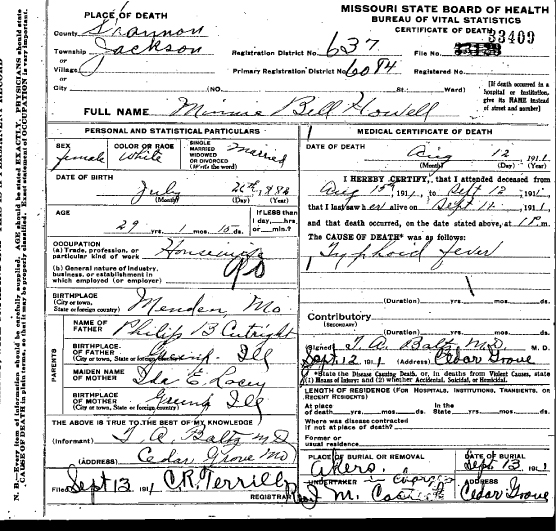 MISSOURI STATE BOARD OF HEALTH
BUREAU OF VITAL STATISTICS
CERTIFICATE OF DEATH
PLACE OF DEATH
County Shannon
Township Jackson
or
Village
or
City (NO. St.; Ward)
Registration District No. 637
File No. 33409
Primary Registration District No. 6084
Registered No.
[If death occurred in a
hospital or institution,
give its NAME instead
of street and number]
FULL NAME Minnie Bell Howell
PERSONAL AND STATISTICAL PARTICULARS
SEX female
COLOR OR RACE White
SINGLE
MARRIED
WIDOWED
OR DIVORCED
(Write the word)
Married
DATE OF BIRTH
July 26th, 1882
(Month) (Day) (Year)
AGE
29 yrs. mos. ds.
If LESS than
1 day, hrs.
or min.?
OCCUPATION
(a) Trade, profession, or
particular kind of work Housewife
(b) General nature of industry,
business, or establishment in
which employed (or employer)
BIRTHPLACE
(City or town,
State or foreign country) Mo
PARENTS
NAME OF
FATHER Philip B Cutright
BIRTHPLACE
OF FATHER
(City or town, State or foreign country) Ill
MAIDEN NAME
OF MOTHER Ida E. Lacey
BIRTHPLACE
OF MOTHER
(City or town, State or foreign country) Ill
THE ABOVE IS TRUE TO THE BEST OF MY KNOWLEDGE
(Informant) T. A. Baltz MD
(ADDRESS) Cedar Grove Mo
Filed Sept 13 1911 C.R. Terrill
REGISTRAR
MEDICAL CERTIFICATE OF DEATH
DATE OF DEATH
Aug 12 1911
(Month) (Day) (Year)
I HEREBY CERTIFY, that I attended deceased from
Aug 1911, to Sept 12 1911
that I last saw her alive on Sept 11 1911
and that death occurred, on the date stated above, at 1 P.m.
The CAUSE OF DEATH* was as follows:
Typhoid fever
(Duration) yrs. mos. ds.
Contributory
(SECONDARY)
(Duration) yrs. mos. ds.
(Signed) T. A. Baltz M.D. M. D.
Sept 12 1911 (Address) Cedar Grove
*State the Disease Causing Death, or, in deaths from Violent Causes, state
(1) Means of Injury; and (2) whether Accidental, Suicidal, or Homicidal.
LENGTH OF RESIDENCE (FOR HOSPITALS, INSTITUTIONS, TRANSIENTS, OR
RECENT RESIDENTS)
At place
of death yrs. mos. ds.
In the
State yrs. mos. ds.
Where was disease contracted
if not at place of death?
Former or
usual residence
PLACE OF BURIAL OR REMOVAL
Akers
DATE OF BURIAL
Sept 13 1911
UNDERTAKER
ADDRESS
Cedar Grove
N. B.—Every item of information should be carefully supplied. AGE should be stated EXACTLY. PHYSICIANS should state
CAUSE OF DEATH in plain terms, so that it may be properly classified. Exact statement of OCCUPATION is very important.